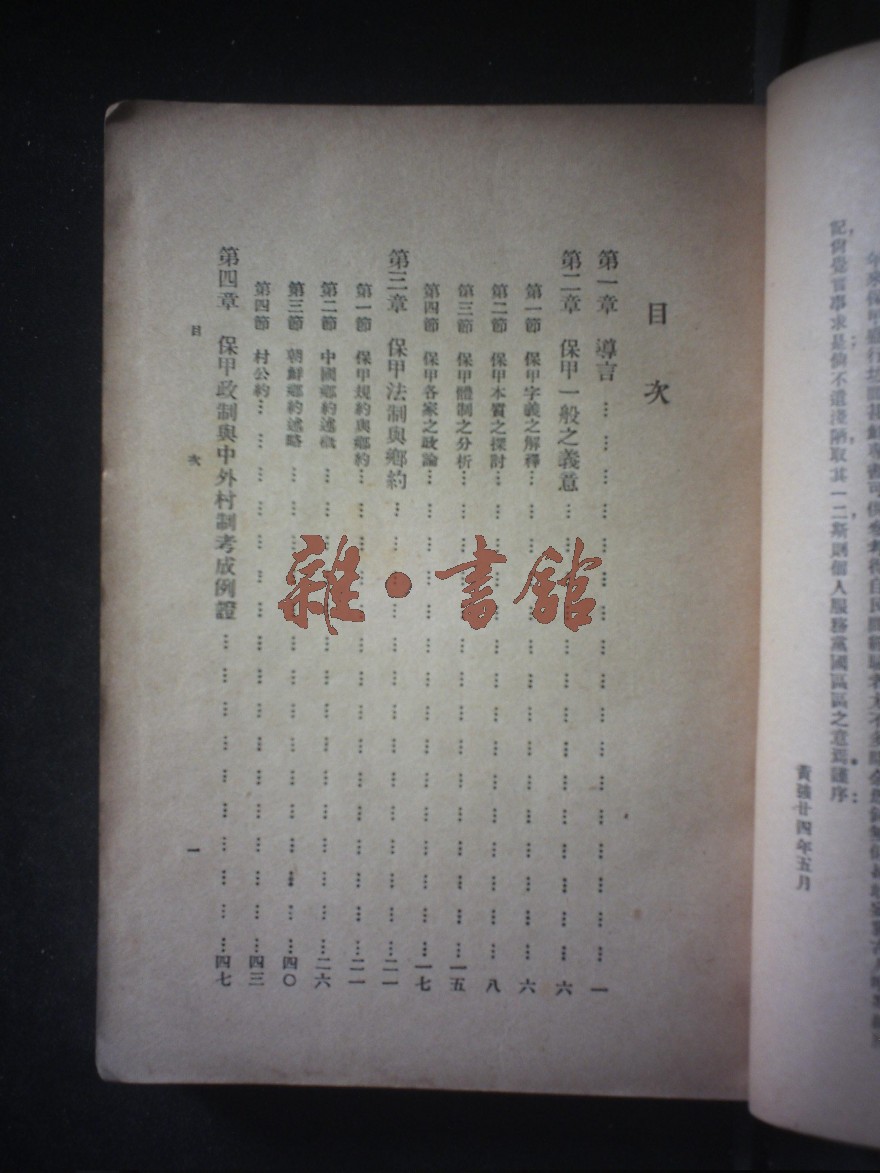 記尙覺官事求是倘不遺淺陋取其一二斯則個人服務黨國區區之意焉謹序
黃强廿四年五月
目次
第一章 導言 一
第二章 保甲一般之義意 六
第一節 保甲字義之解釋 六
第二節 保甲本質之探討 八
第三節 保甲體制之分析 一五
第四節 保甲各家之政論 一七
第三章 保甲法制與鄉約 二一
第一節 保甲規約與鄉約 二一
第二節 中國鄉約述概 二六
第三節 朝鮮鄉約述略 四〇
第四節 村公約 四三
第四章 保甲政制與中外村制考成例證 四七
目次 一
雜·書館